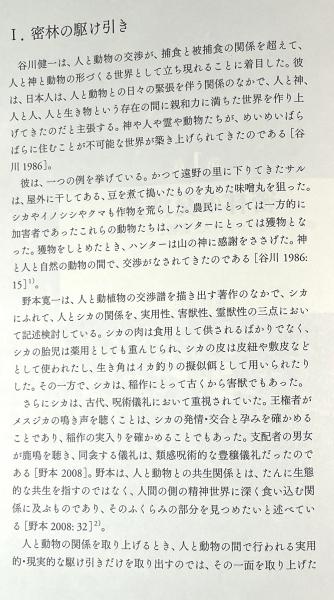 I. 密林の駆け引き
谷川健一は、人と動物の交渉が、捕食と被捕食の関係を超えて、
人と神と動物の形づくる世界として立ち現れることに着目した。彼
は、日本人は、人と動物との日々の緊張を伴う関係のなかで、人と神、
人と人、人と生き物という存在の間に親和力に満ちた世界を作り上
げてきたのだと主張する。神や人や霊や動物たちが、めいめいばら
ばらに住むことが不可能な世界が築き上げられてきたのである［谷
川 1986］。
彼は、一つの例を挙げている。かつて遠野の里に下りてきたサル
は、屋外に干してある、豆を煮て搗いたものを丸めた味噌丸を狙った。
シカやイノシシやクマも作物を荒らした。農民にとっては一方的に
加害者であったこれらの動物たちは、ハンターにとっては獲物とな
った。獲物をしとめたとき、ハンターは山の神に感謝をささげた。神
と人と自然の動物の間で、交渉がなされてきたのである［谷川 1986:
15］1)。
野本寛一は、人と動植物の交渉譜を描き出す著作のなかで、シカ
にふれて、人とシカの関係を、実用性、害獣性、霊獣性の三点におい
て記述検討している。シカの肉は食用として供されるばかりでなく、
シカの胎児は薬用としても重んじられ、シカの皮は皮紐や敷皮など
として使われたし、生き角はイカ釣りの擬似餌として用いられたり
した。その一方で、シカは、稲作にとって古くから害獣でもあった。
さらにシカは、古代、呪術儀礼において重視されていた。王権者が
メスジカの鳴き声を聴くことは、シカの発情・交合と孕みを確かめる
ことであり、稲作の実入りを確かめることでもあった。支配者の男女
が鹿鳴を聴き、同衾する儀礼は、類感呪術的な豊穣儀礼だったので
ある［野本 2008］。野本は、人と動物との共生関係とは、たんに生態
的な共生を指すのではなく、人間の側の精神世界に深く食い込む関
係に及ぶものであり、そのふくらみの部分を見つめたいと述べてい
る［野本 2008: 32］2)。
人と動物の関係を取り上げるとき、人と動物の間で行われる実用
的・現実的な駆け引きだけを取り出すのでは、その一面を取り上げた